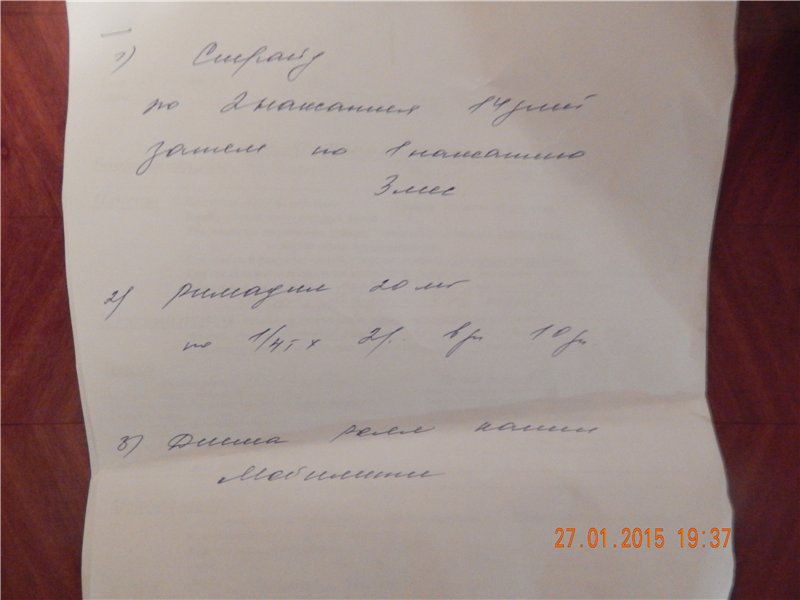 1) Страйд
по 2 нажатия 14 дней
затем по 1 нажатию
3 мес
2) Римадил 20 мг
по 1/4 т х 2 р. в дн 10 дн
3) Диета роял канин
Мобилити
27.01.2015 19:37